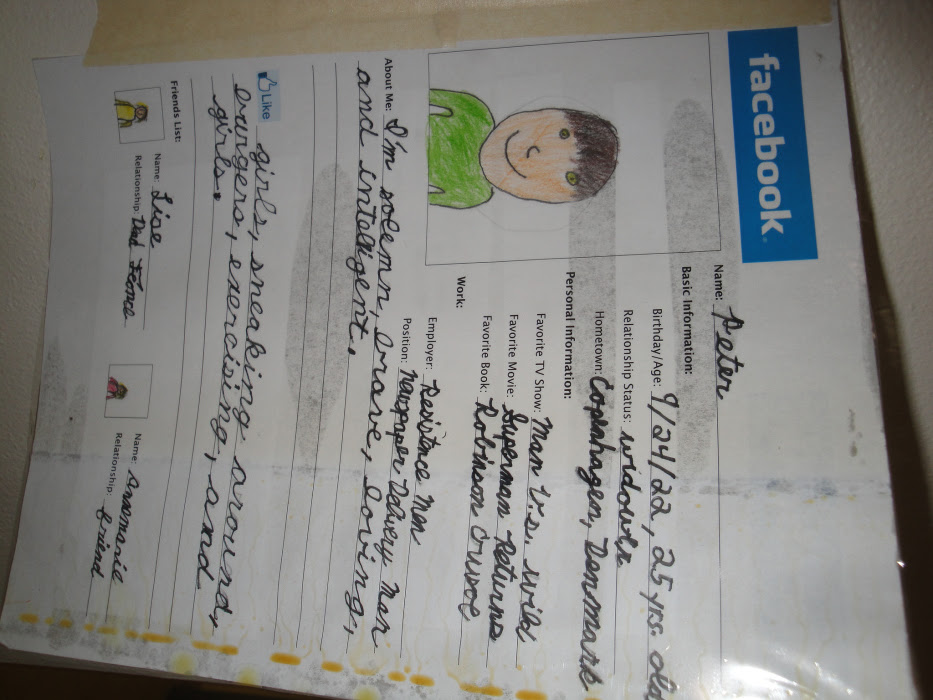 facebook
Name: Peter
Basic Information:
Birthday/Age: 9/24/22, 25 yrs. old
Relationship Status: widower
Hometown: Copenhagen, Denmark
Personal Information:
Favorite TV Show: Man v.s. wild
Favorite Movie: Superman Returns
Favorite Book: Robinson Crusoe
Work:
Employer: Resistence Men
Position: Newpaper Delivery Man
About Me: I'm solemn, brave, loving,
and intelligent.
Like girls, sneaking around,
burgers, exercising, and
girls.
Friends List:
Name: Lise
Relationship: Dead
Name: annmarie
Relationship: friend